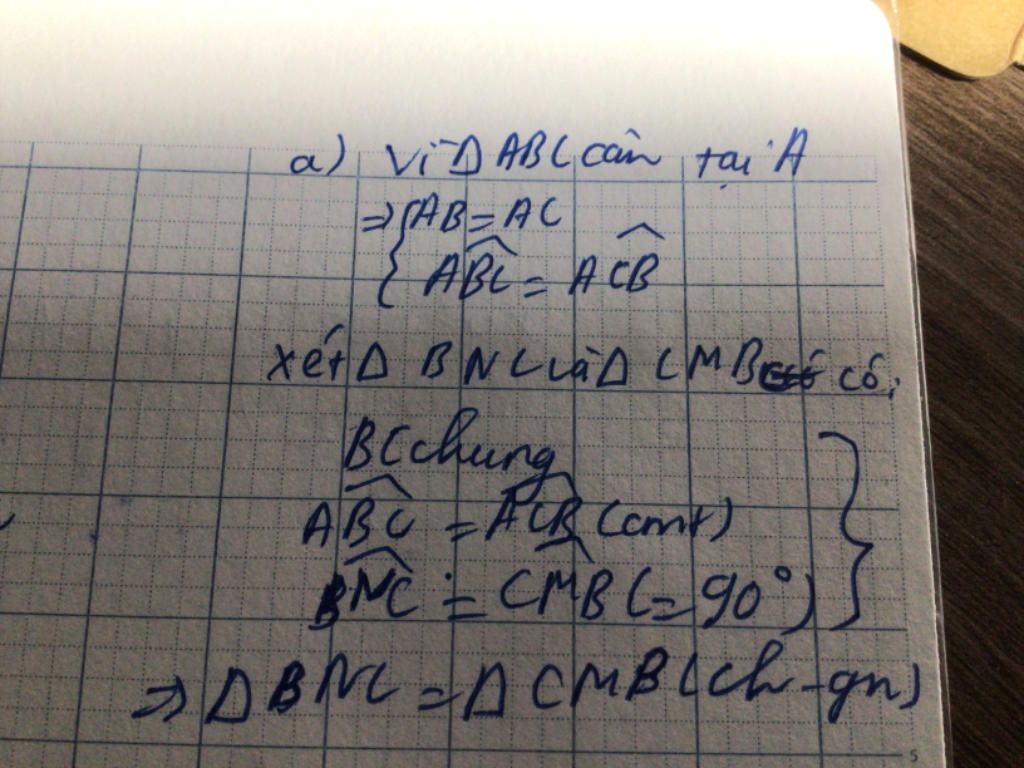 a) Vì Δ ABC cân tại A
⇒ { AB = AC
ABC^ = ACB^
Xét Δ BNC và Δ CMB có:
BC chung
ABC^ = ACB^ (cmt)
BNC^ = CMB^ (= 90°) }
⇒ Δ BNC = Δ CMB (ch-gn)
5